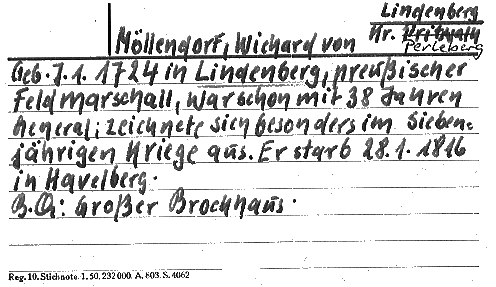 Lindenberg
Kr. Pritzwalk
Perleberg
Möllendorf, Wichard von
Geb. 7.1.1724 in Lindenberg, preußischer
Feldmarschall, war schon mit 38 Jahren
General; zeichnete sich besonders im Sieben-
jährigen Kriege aus. Er starb 28.1.1816
in Havelberg.
B.Qu: Großer Brockhaus.
Reg. 10. Stichnote. 1. 50. 232000. A. 803. S. 4062